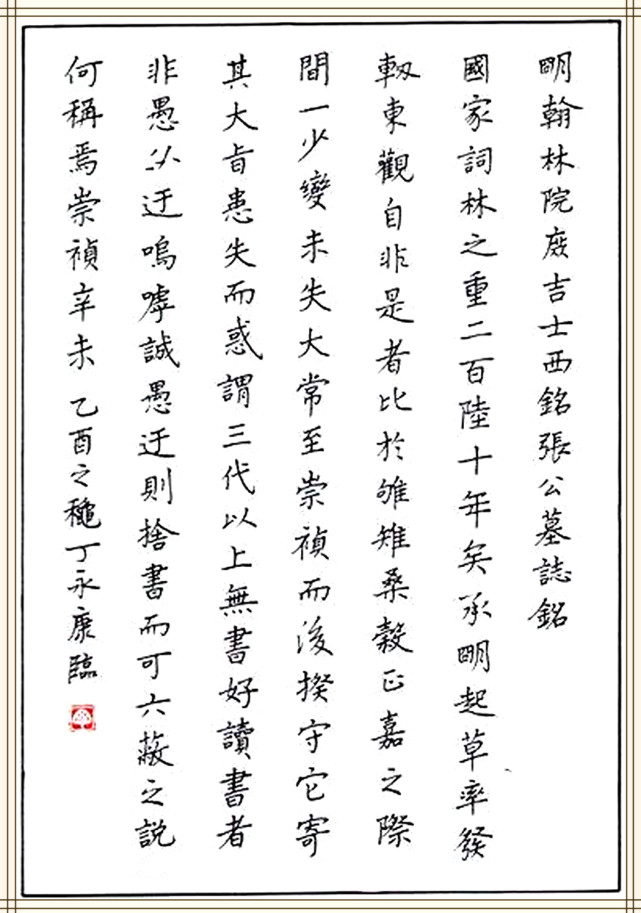 明翰林院庻吉士西銘張公墓誌銘
國家詞林之重二百陸十年矣承明起草率發
軔東觀自非是者比於雊雉桑榖正嘉之際
間一少變未失大常至崇禎而後揆守它寄
其大旨患失而惑謂三代以上無書好讀書者
非愚必迂嗚嘑誠愚迂則捨書而可六蔽之説
何稱焉崇禎辛未 乙酉之穐丁永康臨